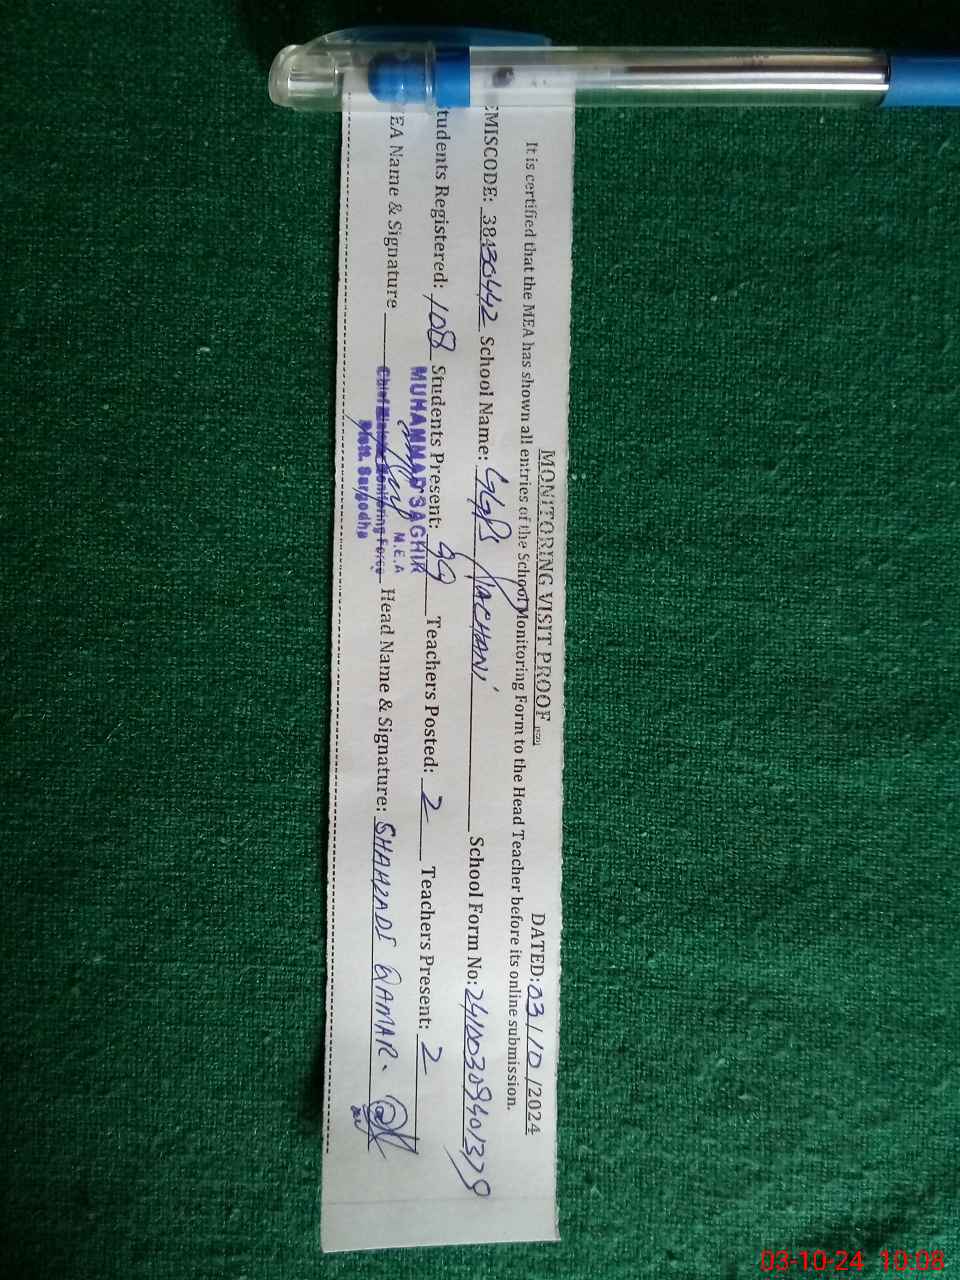 MONITORING VISIT PROOF
DATED: 03/10/2024
It is certified that the MEA has shown all entries of the School Monitoring Form to the Head Teacher before its online submission.
EMISCODE: 38430442 School Name: GGPS School Form No:
tudents Registered: 108 Students Present: 99 Teachers Posted: 2 Teachers Present: 2
MEA Name & Signature Head Name & Signature: SHAHZADI QAMAR.
MUHAMMAD SAGHIR
M.E.A
Chief Minister Monitoring Force
Sargodha
03-10-24 10:08